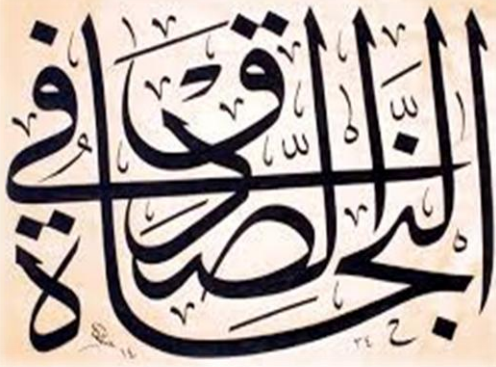 النَّجَاةُ فِي الصِّدْقِ